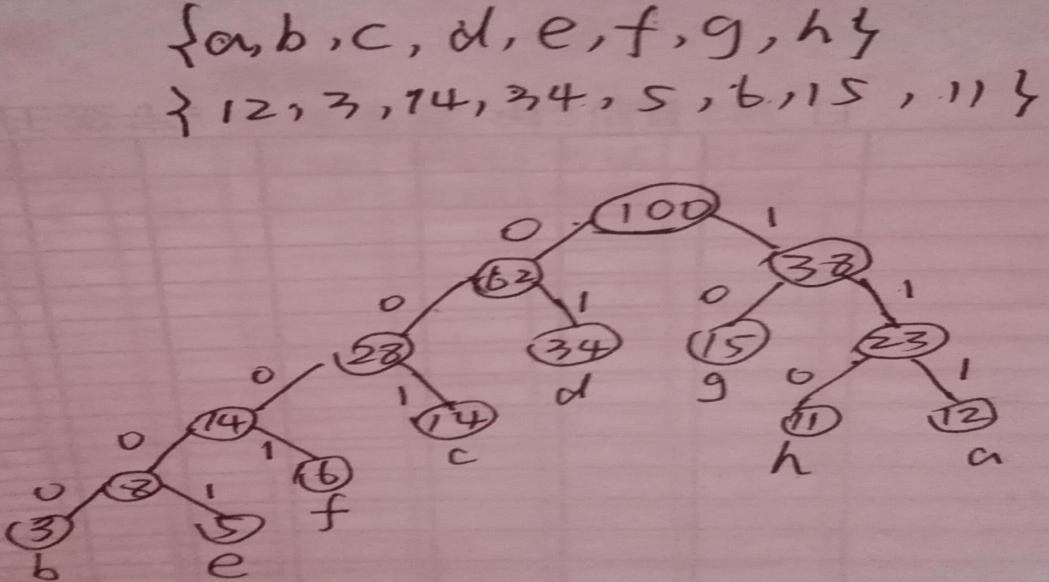 {a,b,c,d,e,f,g,h}
{12,3,14,34,5,6,15,11}
100
0 1
62 38
0 1 0 1
28 34 15 23
d g
0 1 0 1
14 14 11 12
c h a
0 1
8 6
f
0 1
3 5
b e